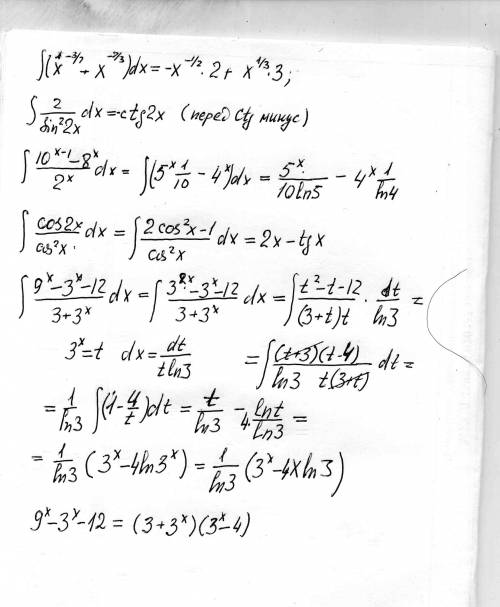 ∫(x^{-3/2} + x^{-2/3})dx = -x^{-1/2}·2 + x^{1/3}·3;
∫ 2/sin²2x dx = -ctg2x (перед ctg минус)
∫ (10^{x-1} - 8^x)/2^x dx = ∫(5^x 1/10 - 4^x)dx = 5^x/(10ln5) - 4^x 1/ln4
∫ cos2x/cos²x dx = ∫ (2cos²x-1)/cos²x dx = 2x - tgx
∫ (9^x - 3^x - 12)/(3+3^x) dx = ∫ (3^{2x} - 3^x - 12)/(3+3^x) dx = ∫ (t² - t - 12)/((3+t)t) · dt/ln3 =
3^x = t dx = dt/(t ln3) = ∫ (t+3)(t-4)/(ln3 t(3+t)) dt =
= 1/ln3 ∫(1 - 4/t)dt = t/ln3 - 4·lnt/ln3 =
= 1/ln3 (3^x - 4ln3^x) = 1/ln3 (3^x - 4xln3)
9^x - 3^x - 12 = (3+3^x)(3^x - 4)